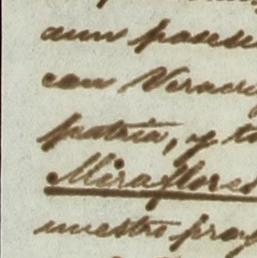 aun
con Verac
patria, y to
Miraflores
nuestro pro